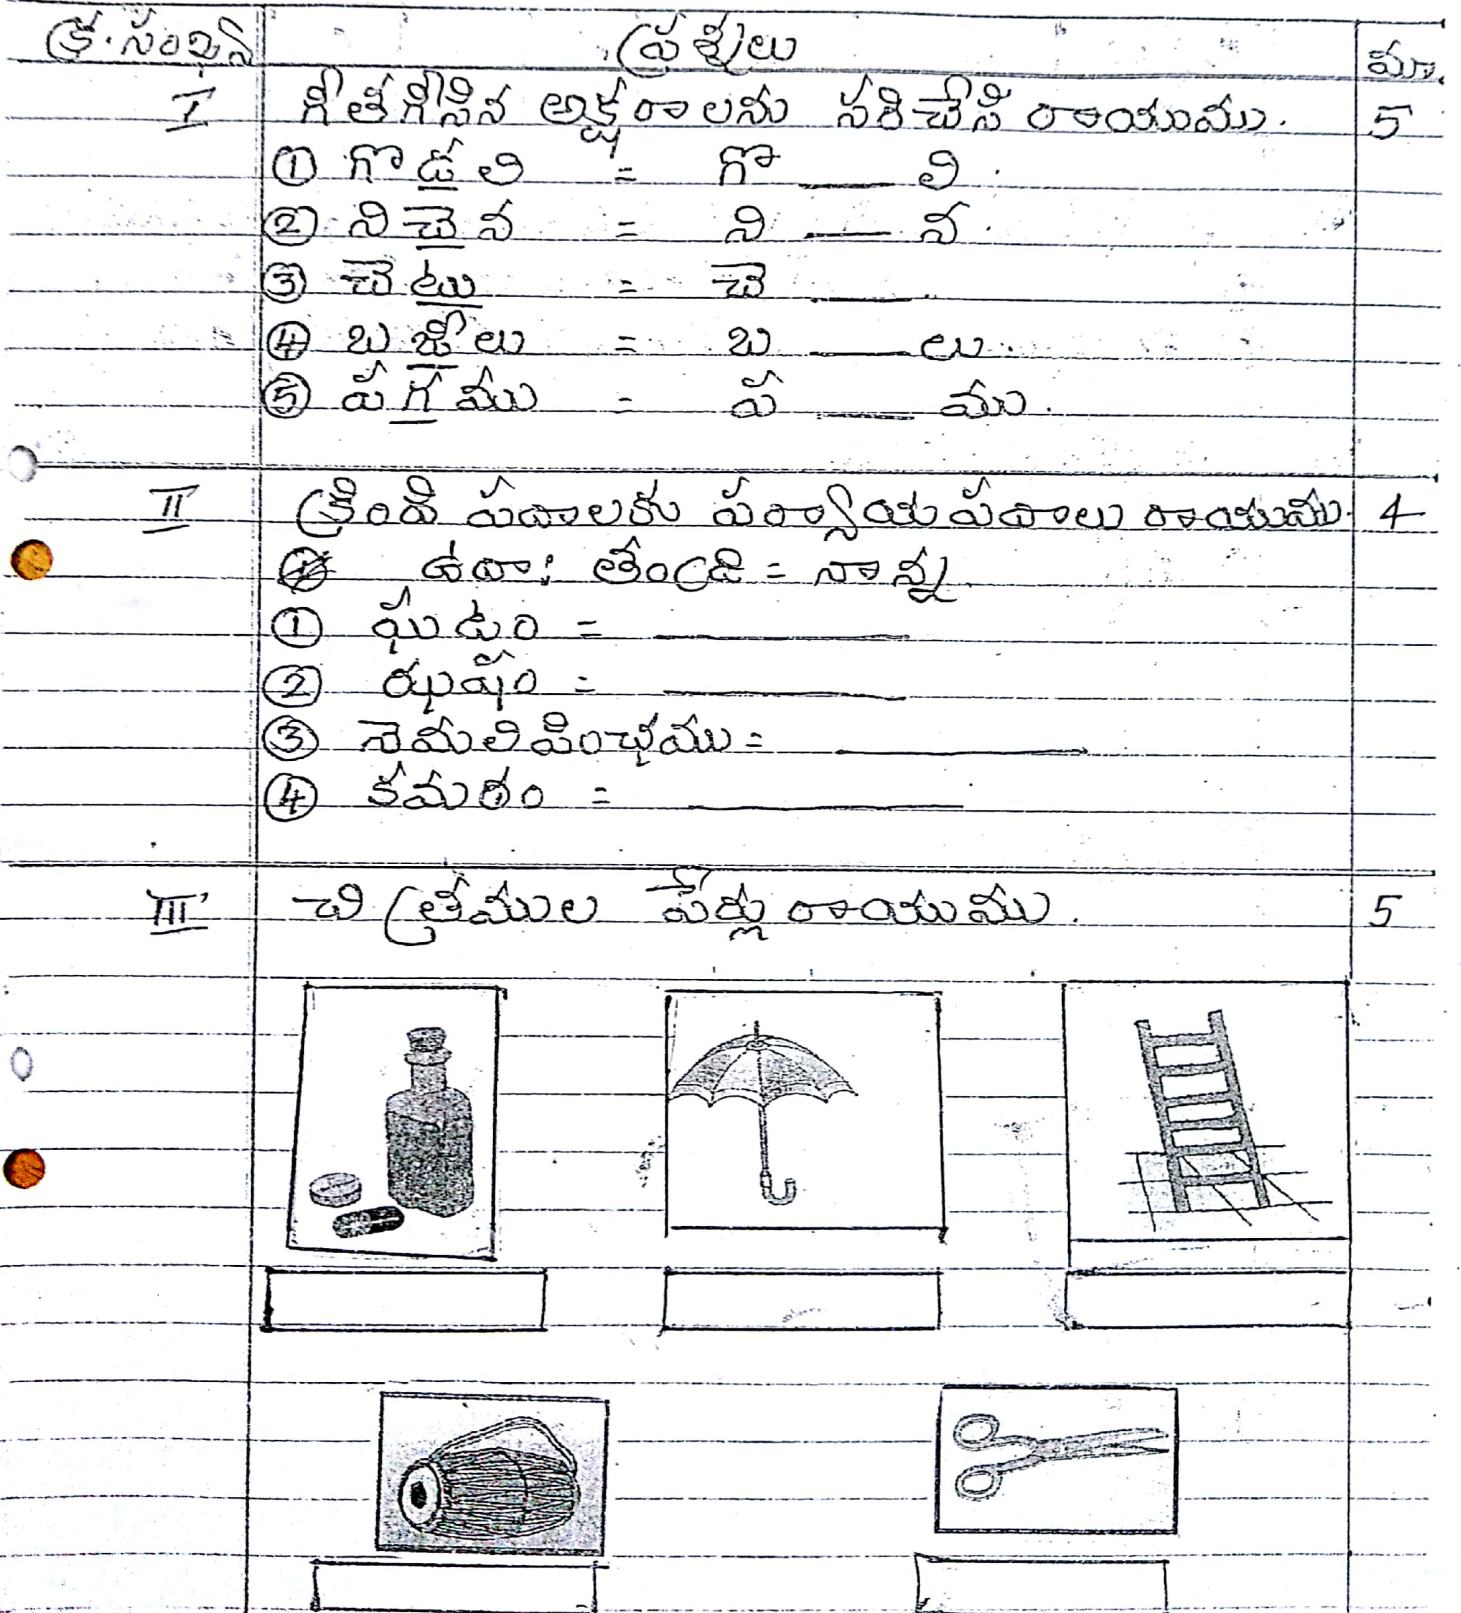 క్ర.సంఖ్య ప్రశ్నలు మా.
I గీతగీసిన అక్షరాలను సరిచేసి రాయుము. 5
① గొడలి = గొ ___ లి.
② నిచెన = ని ___ న.
③ చెటు = చె ___.
④ బజీలు = బ ___ లు.
⑤ పగము = ప ___ ము.
II క్రింది పదాలకు పర్యాయపదాలు రాయుము. 4
ఉదా: తండ్రి = నాన్న
① ఘటం = ___
② ఝషం = ___
③ నెమలిపింఛము = ___
④ కమఠం = ___
III చిత్రముల పేర్లు రాయుము. 5